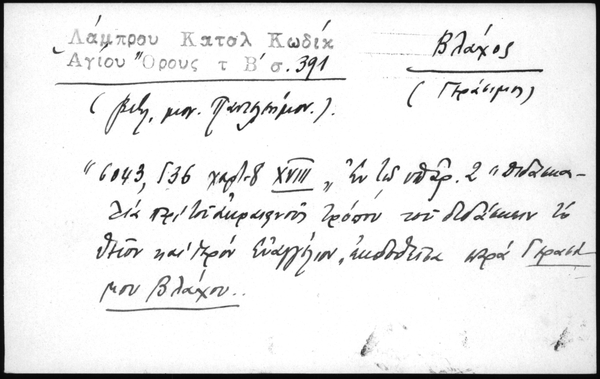 Λάμπρου Κατσλ Κωδίκ
Αγίου Όρους τ Β' σ. 391
Βλάχος
(Γεράσιμος)
(βιβλ. μον. Παντελεήμον.).
"6043, 536 χαρτ. 8 XVIII "Εν τω υπάρ. 2 "Διδασκα-
λία περί του ακραιφνούς τρόπου του διδάσκειν το
θείον και ιερόν Ευαγγέλιον, εκδοθείσα παρά Γερασί
μου Βλάχου..